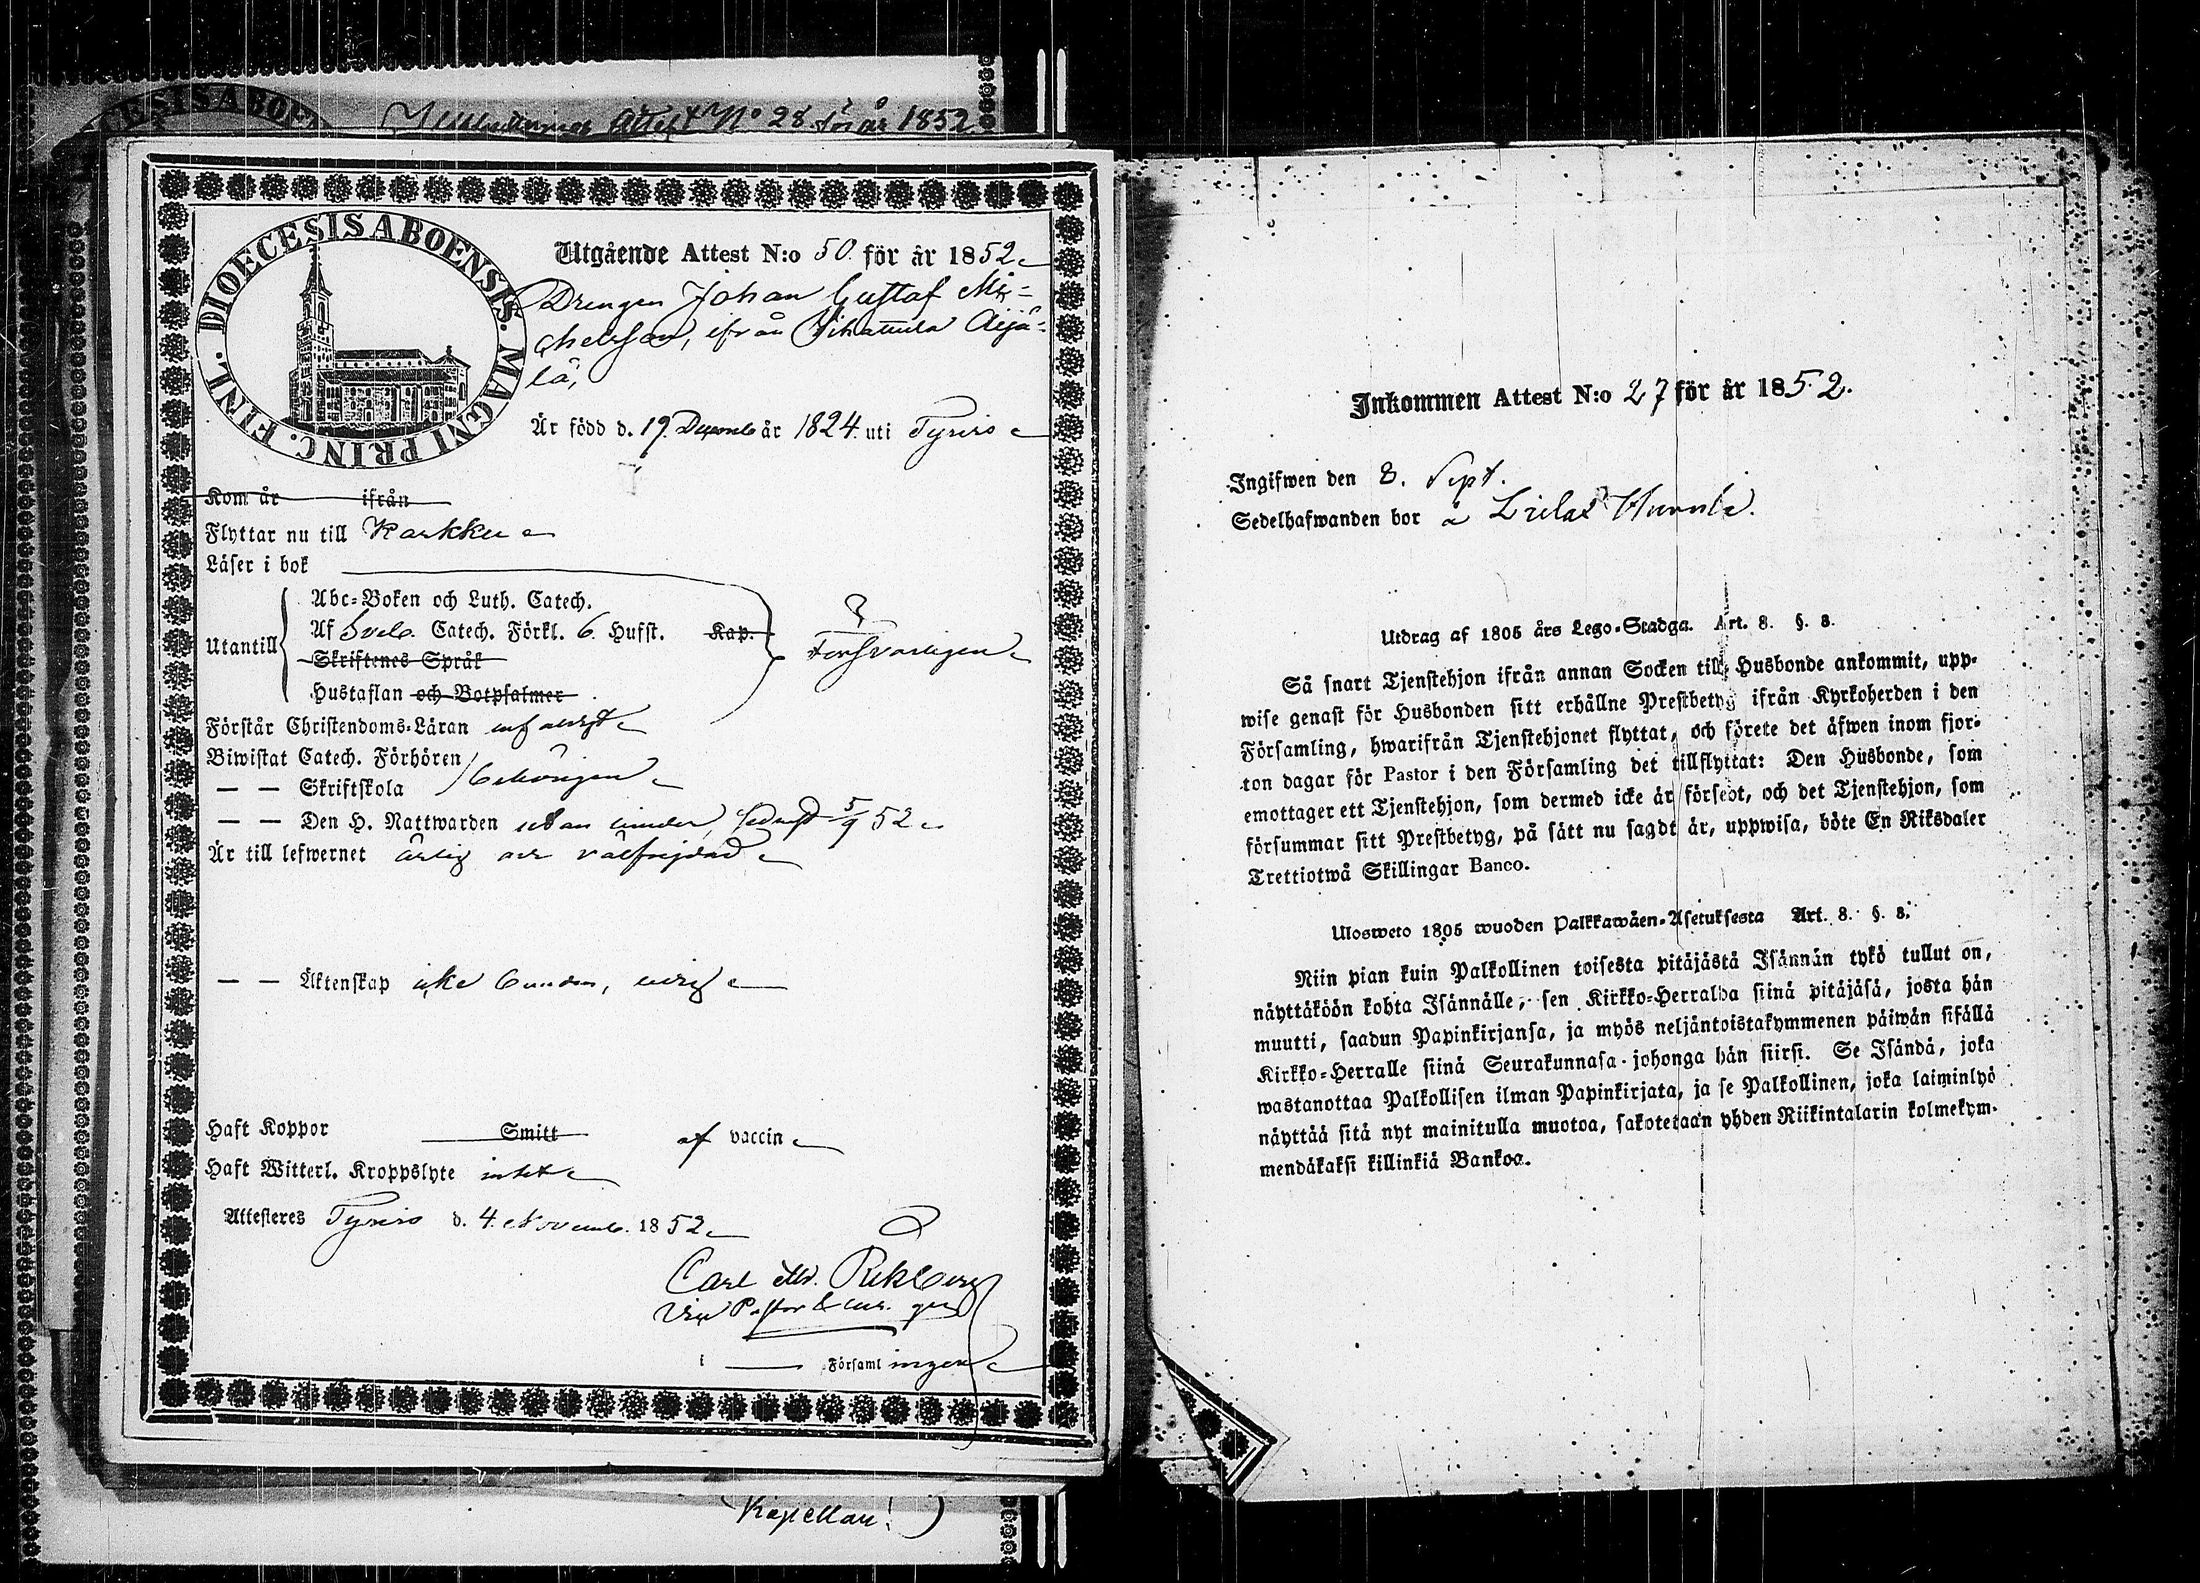 Attest No 28 för år 1852
DIOECESIS ABOENSIS. MAGNI PRINC. FINL.
Utgående Attest N:o 50. för år 1852
Drengen Johan Gustaf Mi=
chelsson, ifrån Vihattula Äijä=
lä,
Är född d. 19. Decemb år 1824. uti Tyrvis
Kom år ifrån
Flyttar nu till Karkku
Läser i bok
Abc=Boken och Luth. Catech.
Af Sveb. Catech. Förkl. 6 Hufst. Kap.
Utantill
försvarligen
Skriftenes Språk
Hustaflan och Botpsalmer
Förstår Christendoms=Läran enfaldigt
Biwistat Catech. Förhören
— — Skriftskola behörigen
— — Den H. Nattwarden utan hinder, sednast 5/9 52
Är till lefwernet ärlig och välfrejdad
— — Äktenskap icke bunden, ledig
Haft Koppor Smitt af vaccin
Haft Witterl. Kroppslyte intet
Attesteres Tyrvis d. 4. Novemb. 1852
Carl Rekberg
Vice Pastor
i Församl ingen
Kapellan!
Inkommen Attest N:o 27 för år 1852.
Ingifwen den 8. Sept.
Sedelhafwanden bor å
Utdrag af 1805 års Lego=Stadga. Art. 8. §. 8.
Så snart Tjenstehjon ifrån annan Socken till Husbonde ankommit, upp=
wise genast för Husbonden sitt erhållne Prestbetyg ifrån Kyrkoherden i den
Församling, hwarifrån Tjenstehjonet flyttat, och förete det äfwen inom fjor=
ton dagar för Pastor i den Församling det tillflyttat: Den Husbonde, som
emottager ett Tjenstehjon, som dermed icke är försedt, och det Tjenstehjon, som
försummar sitt Prestbetyg, på sätt nu sagdt är, uppwisa, böte En Riksdaler
Trettiotwå Skillingar Banco.
Ulosweto 1805 wuoden Palkkawäen=Asetuksesta Art. 8. §. 8.
Niin pian kuin Palkollinen toisesta pitäjästä Isännän tykö tullut on,
näyttäköön kohta Isännälle, sen Kirkko=Herralda siinä pitäjäsä, josta hän
muutti, saadun Papinkirjansa, ja myös neljäntoistakymmenen päiwän sisällä
Kirkko=Herralle siinä Seurakunnasa johonga hän siirsi. Se Isändä, joka
wastanottaa Palkollisen ilman Papinkirjata, ja se Palkollinen, joka laiminlyö
näyttää sitä nyt mainitulla muotoa, sakotetaan yhden Riikintalarin kolmekym=
mendäkaksi killinkiä Bankoa.